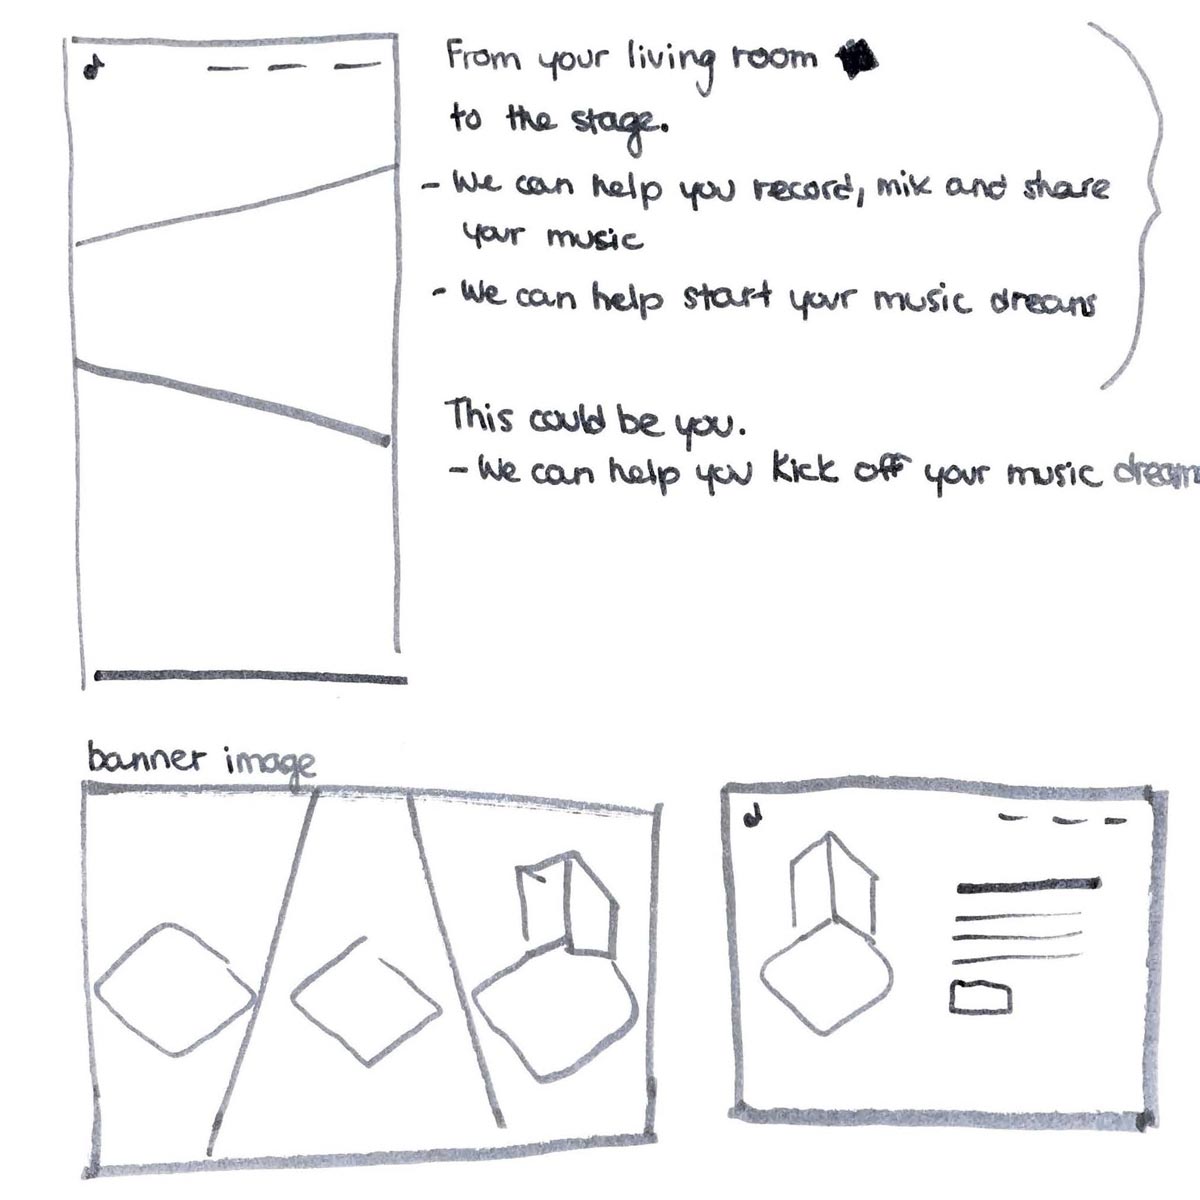 From your living room
to the stage.
- We can help you record, mix and share
your music
- We can help start your music dreams
This could be you.
- We can help you kick off your music dream
banner image